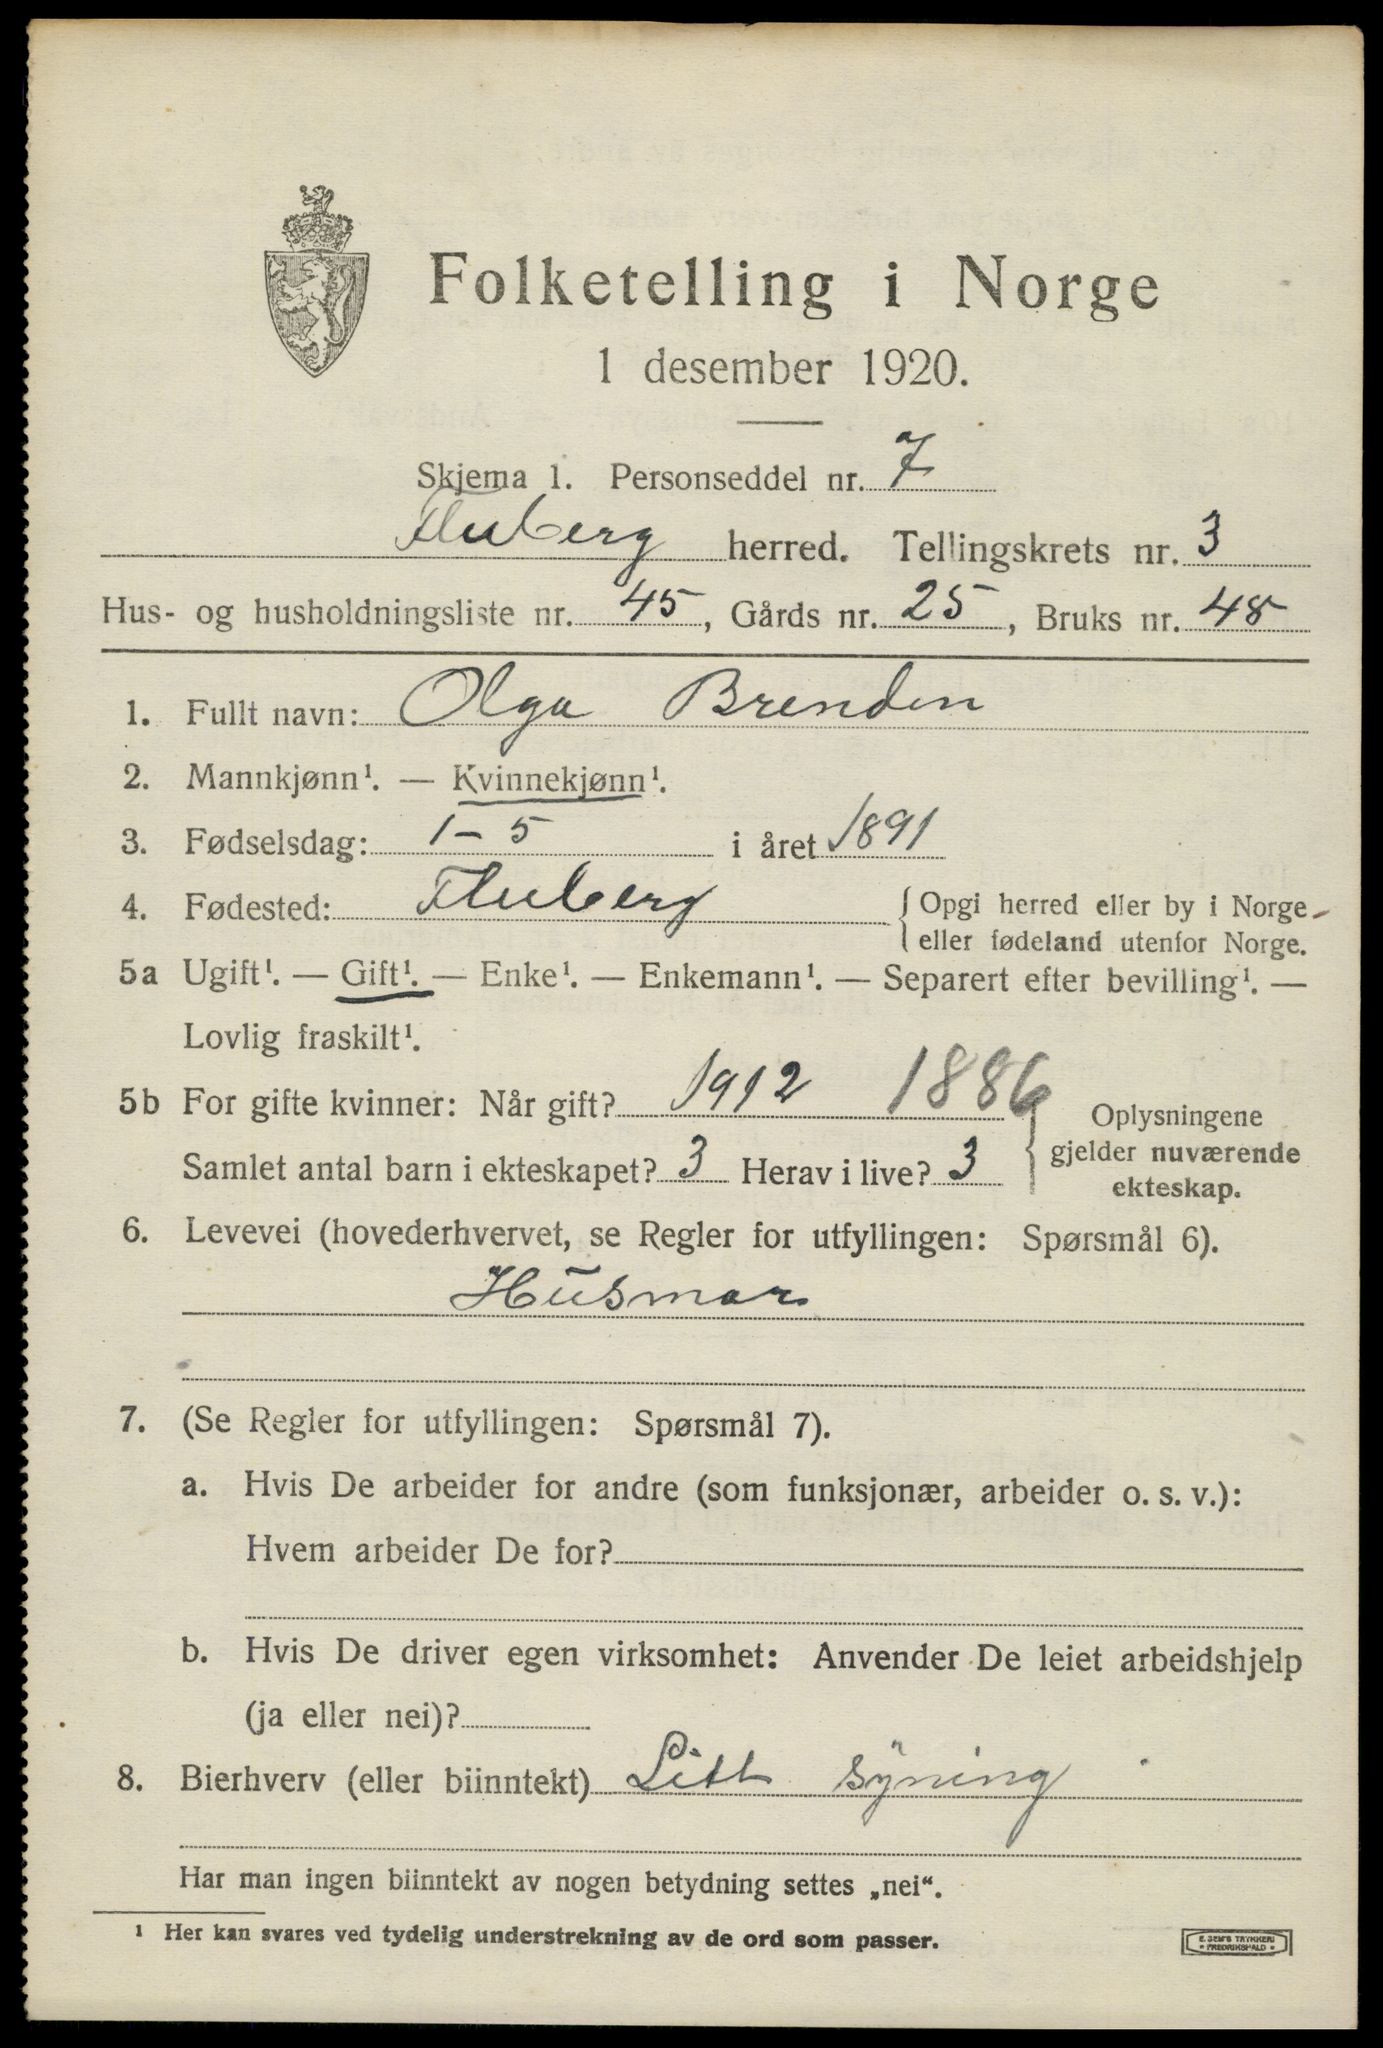 Folketelling i Norge
1 desember 1920.
Skjema 1. Personseddel nr. 7
Fluberg herred. Tellingskrets nr. 3
Hus- og husholdningsliste nr. 45, Gårds nr. 25, Bruks nr. 48
1. Fullt navn: Olga Brenden
2. Mannkjønn¹. — Kvinnekjønn¹.
3. Fødselsdag: 1-5 i året 1891
4. Fødested: Fluberg { Opgi herred eller by i Norge
eller fødeland utenfor Norge.
5a Ugift¹. — Gift¹. — Enke¹. — Enkemann¹. — Separert efter bevilling¹. —
Lovlig fraskilt¹.
5b For gifte kvinner: Når gift? 1912 1886
Samlet antal barn i ekteskapet? 3 Herav i live? 3
{ Oplysningene
gjelder nuværende
ekteskap.
6. Levevei (hovederhvervet, se Regler for utfyllingen: Spørsmål 6).
Husmor
7. (Se Regler for utfyllingen: Spørsmål 7).
a. Hvis De arbeider for andre (som funksjonær, arbeider o. s. v.):
Hvem arbeider De for?
b. Hvis De driver egen virksomhet: Anvender De leiet arbeidshjelp
(ja eller nei)?
8. Bierhverv (eller biinntekt) Litt syning
Har man ingen biinntekt av nogen betydning settes „nei“.
¹ Her kan svares ved tydelig understrekning av de ord som passer.
E. SEM'S TRYKKERI
• FREDRIKSHALD •